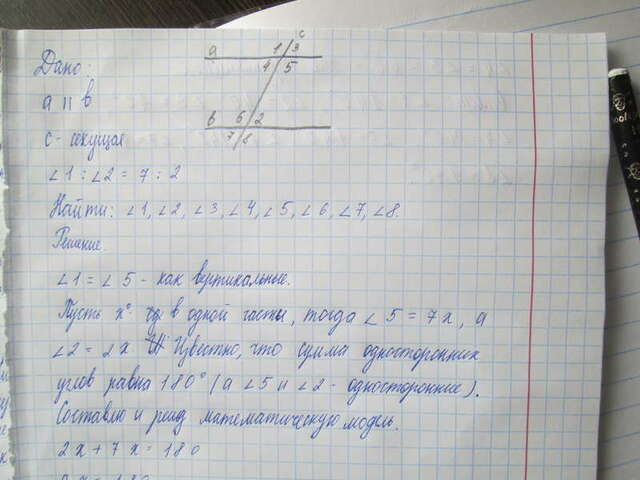 Дано:
a 1 3 c
4 5
a || b
b 6 2
7 8
c - секущая
∠1 : ∠2 = 7 : 2
Найти: ∠1, ∠2, ∠3, ∠4, ∠5, ∠6, ∠7, ∠8.
Решение.
∠1 = ∠5 - как вертикальные.
Пусть x° в одной части, тогда ∠5 = 7x, а
∠2 = 2x Известно, что сумма односторонних
углов равна 180° (а ∠5 и ∠2 - односторонние).
Составлю и решу математическую модель.
2x + 7x = 180